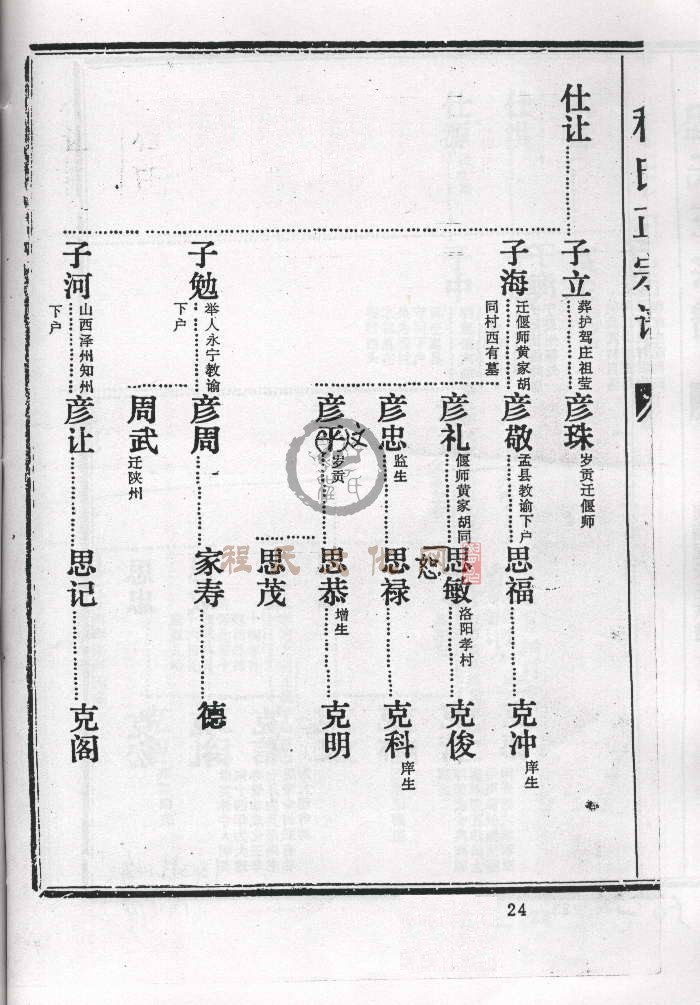 程氏正宗谱
仕让
子立
葬护驾庄祖莹
彦珠
岁贡迁偃师
子海
迁偃师黄家胡
同村西有墓
彦敬
孟县教谕下户
思福
克冲
庠生
彦礼
偃师黄家胡同
思敏
洛阳孝村
克俊
彦忠
监生
思禄
克科
庠生
彦平
岁贡
思恭
增生
克明
思茂
子勉
举人永宁教谕
下户
彦周
家寿
德
周武
迁陕州
子河
山西泽州知州
下户
彦让
思记
克阁
程氏文化网
24